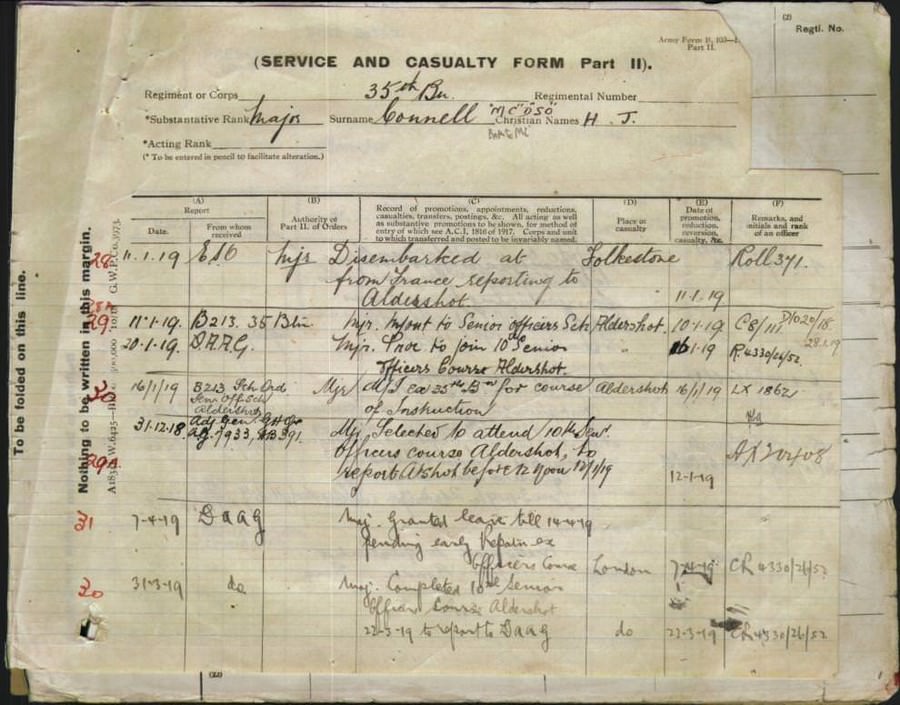 (2)
Regtl. No.
Army Form B. 103—
Part II.
(SERVICE AND CASUALTY FORM Part II).
Regiment or Corps 35th Bn. Regimental Number
"MC" "DSO"
*Substantative Rank Major Surname Connell Christian Names H. J.
*Acting Rank
(* To be entered in pencil to facilitate alteration.)
To be folded on this line.
Nothing to be written in this margin.
(A)
Report
Date.
From whom received
(B)
Authority of Part II. of Orders
(C)
Record of promotions, appointments, reductions, casualties, transfers, postings, &c. All acting as well as substantive promotions to be shown, for method of entry of which see A.C.I. 1816 of 1917. Corps and unit to which transferred and posted to be invariably named.
(D)
Place of casualty
(E)
Date of promotion, reduction, reversion, casualty, &c.
(F)
Remarks, and initials and rank of an officer
28 11.1.19 Mjr Disembarked at Folkestone Roll 371.
from France reporting to
Aldershot. 11.1.19
29. 11.1.19. B213. 35 Bn Mjr. Mout to Senior officers Sch Aldershot. 10.1.19
28.1.19
20.1.19. D.A.A.G. Mjr. Proc to join 10th Senior " 1.19 R.4330/26/52.
officers Course Aldershot.
16/1/19 B213 Sch Ord Mjr ex 35th Bn for course Aldershot 16/1/19 LX 18621
Sen Off Sch
Aldershot of Instruction
31.12.18. Adj Gen. GHQ Mjr Selected to attend 10th Sen.
29A officers course Aldershot, to
report A'shot before 12 noon 12/1/19 12-1-19
31 7-4-19 DAAG Maj. Granted leave till 14-4-19
pending early Repatn ex
Officers Course London 7-4-19 CR 4330/26/52
30 31-3-19 do Maj. Completed 10th Senior
Officer Course Aldershot
22-3-19 to report to DAAG do 22-3-19 CR 4330/26/52
(22)